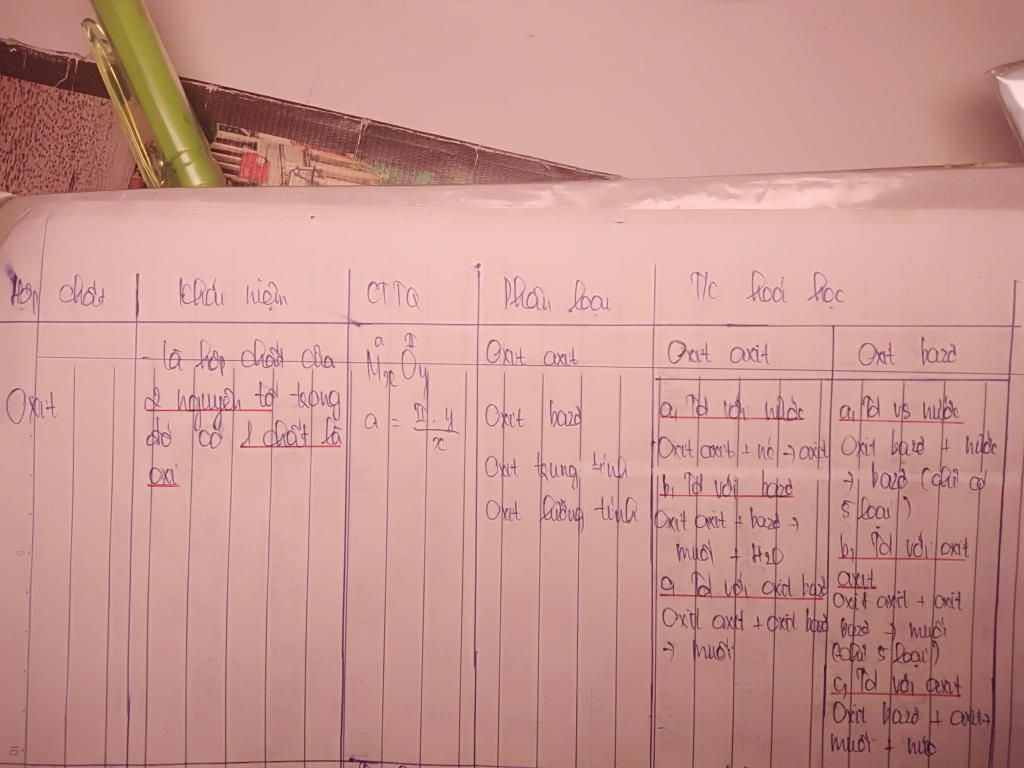 Hợp chất
Khái niệm
CTTQ
Phân loại
T/c hoá học
Oxit
- là hợp chất của
2 nguyên tố trong
đó có 1 chất là
oxi
a II
MxOy
a = II.y
x
Oxit axit
Oxit bazơ
Oxit trung tính
Oxit lưỡng tính
Oxit axit
a, Td với nước
Oxit axit + nc → axit
b, Td với bazơ
Oxit axit + bazơ →
muối + H2O
a, Td với oxit bazơ
Oxit axit + oxit bazơ
→ muối
Oxit bazơ
a, Td vs nước
Oxit bazơ + nước
→ bazơ (chỉ có
5 loại)
b, Td với oxit
axit
Oxit axit + oxit
bazơ → muối
(chỉ 5 loại)
c, Td với axit
Oxit bazơ + axit →
muối + nước
5
10